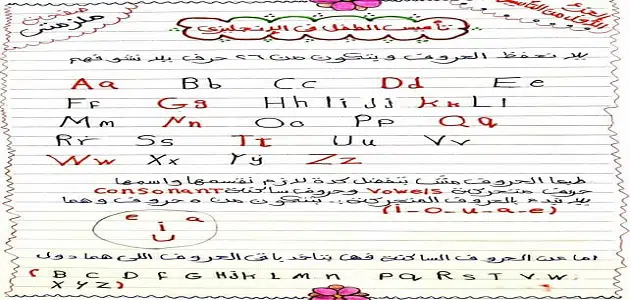 تأسيس الطفل في الإنجليزي
يلا نحفظ الحروف ويتكون من ٢٦ حرف يلا نشوفهم
Aa Bb Cc Dd Ee
Ff Gg Hh Ii Jj Kk Ll
Mm Nn Oo Pp Qq
Rr Ss Tt Uu Vv
Ww Xx Yy Zz
طبعا الحروف مش بتفضل كدة لازم نقسمها واسمها
حروف متحركة Vowels وحروف ساكنة Consonant
يلا نبدء بالحروف المتحركة .. بتتكون من ٥ حروف وهما
(i-o-u-a-e)
e i a
u
اما عن الحروف الساكنة فهنا بناخد باقي الحروف اللي هما دول
( B C D F G H J K L M n P Q R S T V W
X Y Z )